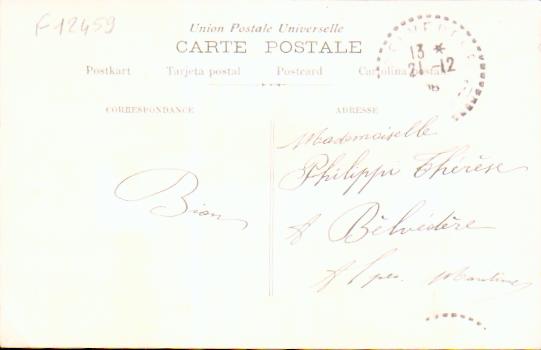 F 12459
Union Postale Universelle
CARTE POSTALE
Postkart Tarjeta postal Postcard Cartolina postal
CORRESPONDANCE ADRESSE
13 *
21-12
Mademoiselle
Philippi Thérèse
Bian
A Bèlvédère
Alpes Maritimes